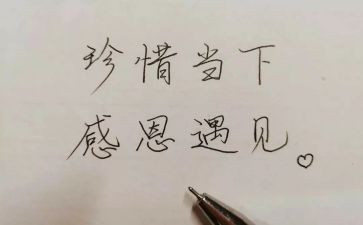 珍惜当下
感恩遇见。